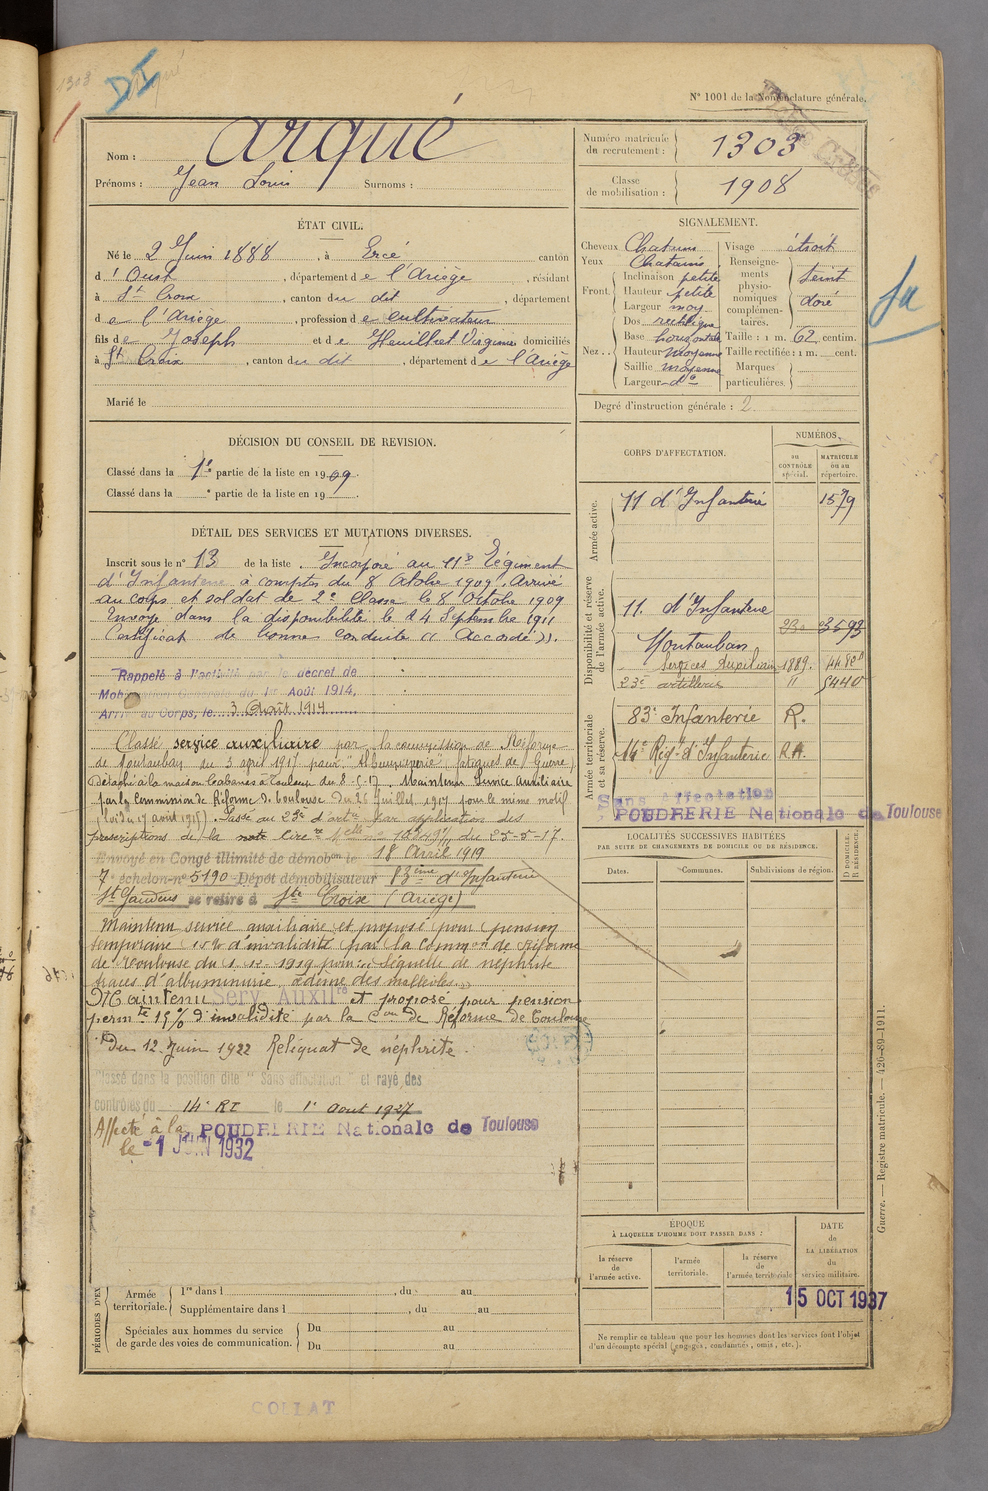 1303
DI
N° 1001 de la Nomenclature générale.
Nom : Arqué
Prénoms : Jean Louis Surnoms :
Numéro matricule du recrutement : 1303
Classe de mobilisation : 1908
ÉTAT CIVIL.
Né le 2 Juin 1888, à Ercé, canton
d'Oust, département de l'Ariège, résidant
à Ste Croix, canton du dit, département
de l'Ariège, profession de cultivateur
fils de Joseph et de Heuillet Virginie domiciliés
à Ste Croix, canton du dit, département de l'Ariège
Marié le
SIGNALEMENT.
Cheveux Chatains
Yeux Chatains
Front. Inclinaison petite
Hauteur petite
Largeur moy
Nez. Dos rectiligne
Base horizontale
Hauteur moyenne
Saillie moyenne
Largeur do
Visage étroit
Renseignements physionomiques complémentaires. teint doré
Taille : 1 m. 62 centim.
Taille rectifiée : 1 m. cent.
Marques particulières.
Degré d'instruction générale : 2
DÉCISION DU CONSEIL DE REVISION.
Classé dans la 1re partie de la liste en 1909.
Classé dans la e partie de la liste en 19 .
DÉTAIL DES SERVICES ET MUTATIONS DIVERSES.
Inscrit sous le n° 13 de la liste. Incorporé au 11e Régiment
d'Infanterie à compter du 8 Octobre 1909, Arrivé
au corps et soldat de 2e Classe le 8 Octobre 1909
Envoyé dans la disponibilité le 24 Septembre 1911
Certificat de bonne conduite "Accordé".
Rappelé à l'activité par le décret de
Mobilisation Générale du 1er Août 1914.
Arrivé au Corps, le 3 Août 1914
Classé service auxiliaire par la commission de Réforme
de Montauban du 3 avril 1917 pour "Albuminurie" (fatigues de Guerre)
Détaché à la maison Cabanes à Toulouse du 8-5-17. Maintenu Service Auxiliaire
par la Commission de Réforme de Toulouse du 26 Juillet 1917 pour le même motif
(loi du 17 août 1915). Passé au 23e d'artie par application des
prescriptions de la note Circre du 25-5-17.
Envoyé en Congé illimité de démobon le 18 Avril 1919
7e échelon n° 5190 Dépôt démobilisateur 83ème d'Infanterie
St Gaudens se retire à Ste Croix (Ariège)
Maintenu service auxiliaire et proposé pour pension
temporaire 15% d'invalidité par la Common de Réforme
de Toulouse du 1 12 1919 pour : Séquelle de néphrite
traces d'albuminurie œdème des malléoles
Maintenu Serv. Auxilre et proposé pour pension
permte 15% d'invalidité par la Con de Réforme de Toulouse
du 12 Juin 1922 Reliquat de néphrite.
Classé dans la position dite "Sans affectation" et rayé des
contrôles du 14e RI le 1er Août 1927
Affecté à la POUDRERIE Nationale de Toulouse
le 1 JUIN 1932
CORPS D'AFFECTATION.
NUMÉROS.
au CONTRÔLE spécial.
MATRICULE ou au répertoire.
Armée active.
11 d'Infanterie 1579
Disponibilité et réserve de l'armée active.
11. d'Infanterie
Montauban
Services Auxiliaires 1889.
23e artillerie " 5440
Armée territoriale et sa réserve.
83e Infanterie R.
14e Régt d'Infanterie
Sans Affectation
POUDRERIE Nationale de Toulouse
LOCALITÉS SUCCESSIVES HABITÉES
PAR SUITE DE CHANGEMENTS DE DOMICILE OU DE RÉSIDENCE.
Dates. Communes. Subdivisions de région. D DOMICILE. R RÉSIDENCE.
ÉPOQUE
À LAQUELLE L'HOMME DOIT PASSER DANS :
la réserve de l'armée active.
l'armée territoriale.
la réserve de l'armée territoriale
DATE de LA LIBÉRATION du service militaire.
15 OCT 1937
Ne remplir ce tableau que pour les hommes dont les services font l'objet
d'un décompte spécial (engagés, condamnés, omis, etc.).
PÉRIODES D'EX
Armée territoriale. 1re dans l , du au
Supplémentaire dans l , du au
Spéciales aux hommes du service de garde des voies de communication. Du au
Du au
Guerre. — Registre matricule. — 426-89-1911.
COLLAT